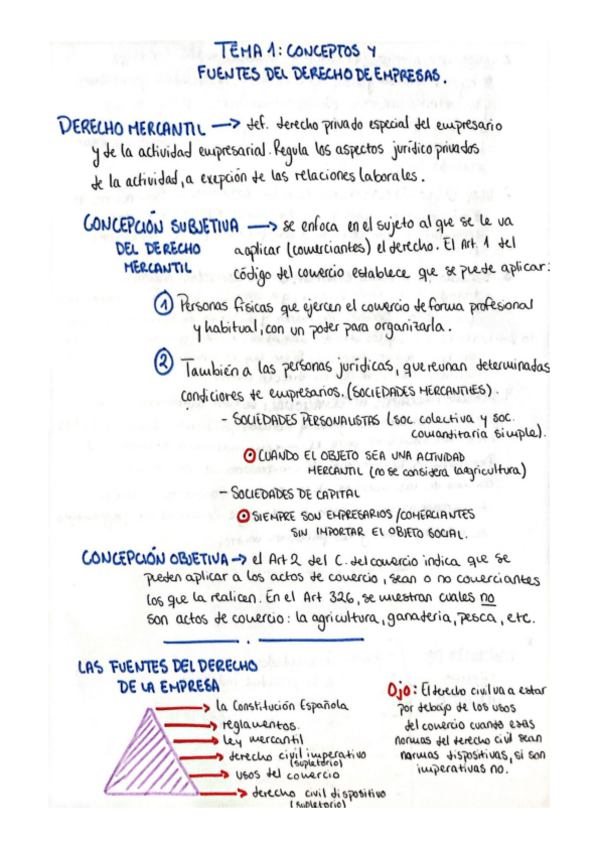 TEMA 1: CONCEPTOS Y
FUENTES DEL DERECHO DE EMPRESAS.
DERECHO MERCANTIL → def. derecho privado especial del empresario
y de la actividad empresarial. Regula los aspectos jurídico privados
de la actividad, a exepción de las relaciones laborales.
CONCEPCIÓN SUBJETIVA → se enfoca en el sujeto al que se le va
DEL DERECHO a aplicar (comerciantes) el derecho. El Art. 1 del
MERCANTIL código del comercio establece que se puede aplicar:
① Personas físicas que ejercen el comercio de forma profesional
y habitual, con un poder para organizarla.
② También a las personas jurídicas, que reunan determinadas
condiciones de empresarios. (SOCIEDADES MERCANTILES).
- SOCIEDADES PERSONALISTAS (soc. colectiva y soc.
comanditaria simple).
CUANDO EL OBJETO SEA UNA ACTIVIDAD
MERCANTIL (no se considera la agricultura)
- SOCIEDADES DE CAPITAL
SIEMPRE SON EMPRESARIOS/COMERCIANTES
SIN IMPORTAR EL OBJETO SOCIAL.
CONCEPCIÓN OBJETIVA → el Art 2 del C. del comercio indica que se
pueden aplicar a los actos de comercio, sean o no comerciantes
los que la realicen. En el Art 326, se muestran cuales no
son actos de comercio: la agricultura, ganadería, pesca, etc.
LAS FUENTES DEL DERECHO
DE LA EMPRESA
→ la Constitución Española
→ reglamentos.
→ ley mercantil
→ derecho civil imperativo
(supletorio)
→ usos del comercio
→ derecho civil dispositivo
(supletorio)
Ojo: El derecho civil va a estar
por debajo de los usos
del comercio cuando esas
normas del derecho civil sean
normas dispositivas, si son
imperativas no.